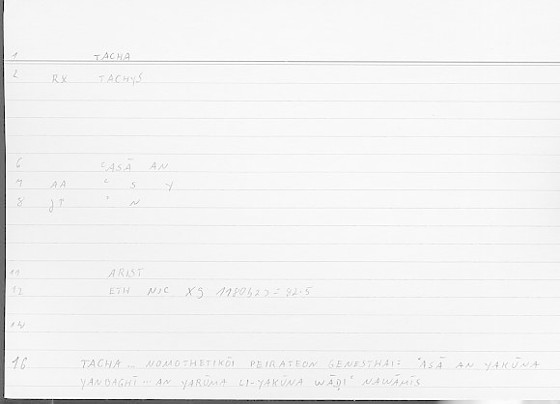 1 TACHA
2 RX TACHYS
6 ʿASĀ AN
7 AA ʿ S Y
8 JT ʾ N
11 ARIST
12 ETH NIC X9
14
16 TACHA .. NOMOTHETIKŌI PEIRATEON GENESTHAI: ʿASĀ AN YAKŪNA
YANBAGHĪ -- AN YARŪMA LI-YAKŪNA WĀḌIʿ NAWĀMĪS